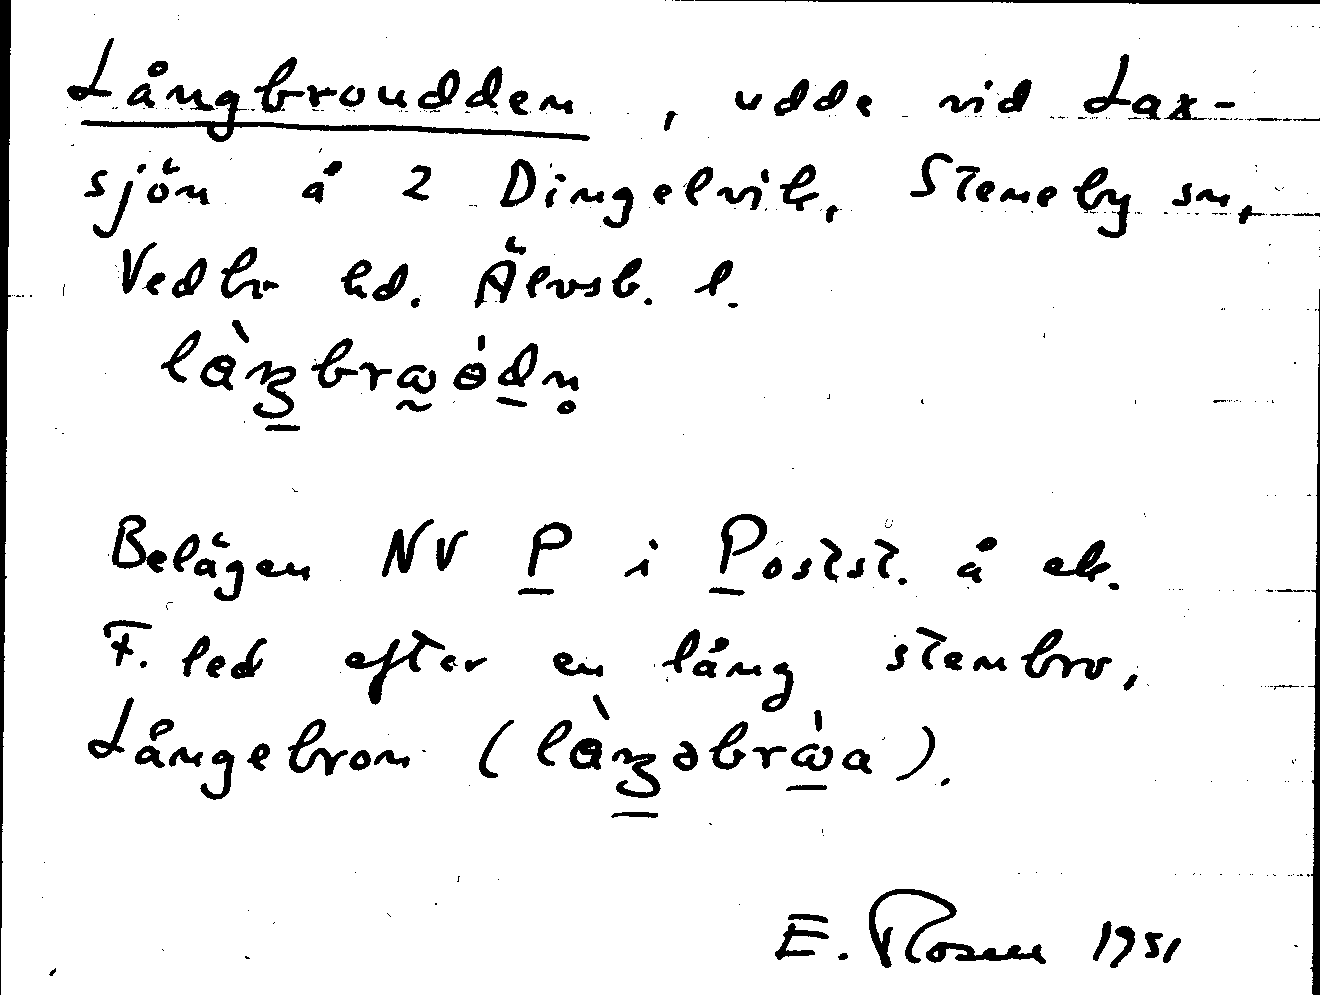 Långbroudden, udde vid Lax-
sjön å 2 Dingelvik, Steneby sn,
Vedbo hd. Älvsb. l.
Belägen NV P i Postst. å ek.
F. led efter en lång stenbro,
Långebron
E. Rosen 1951